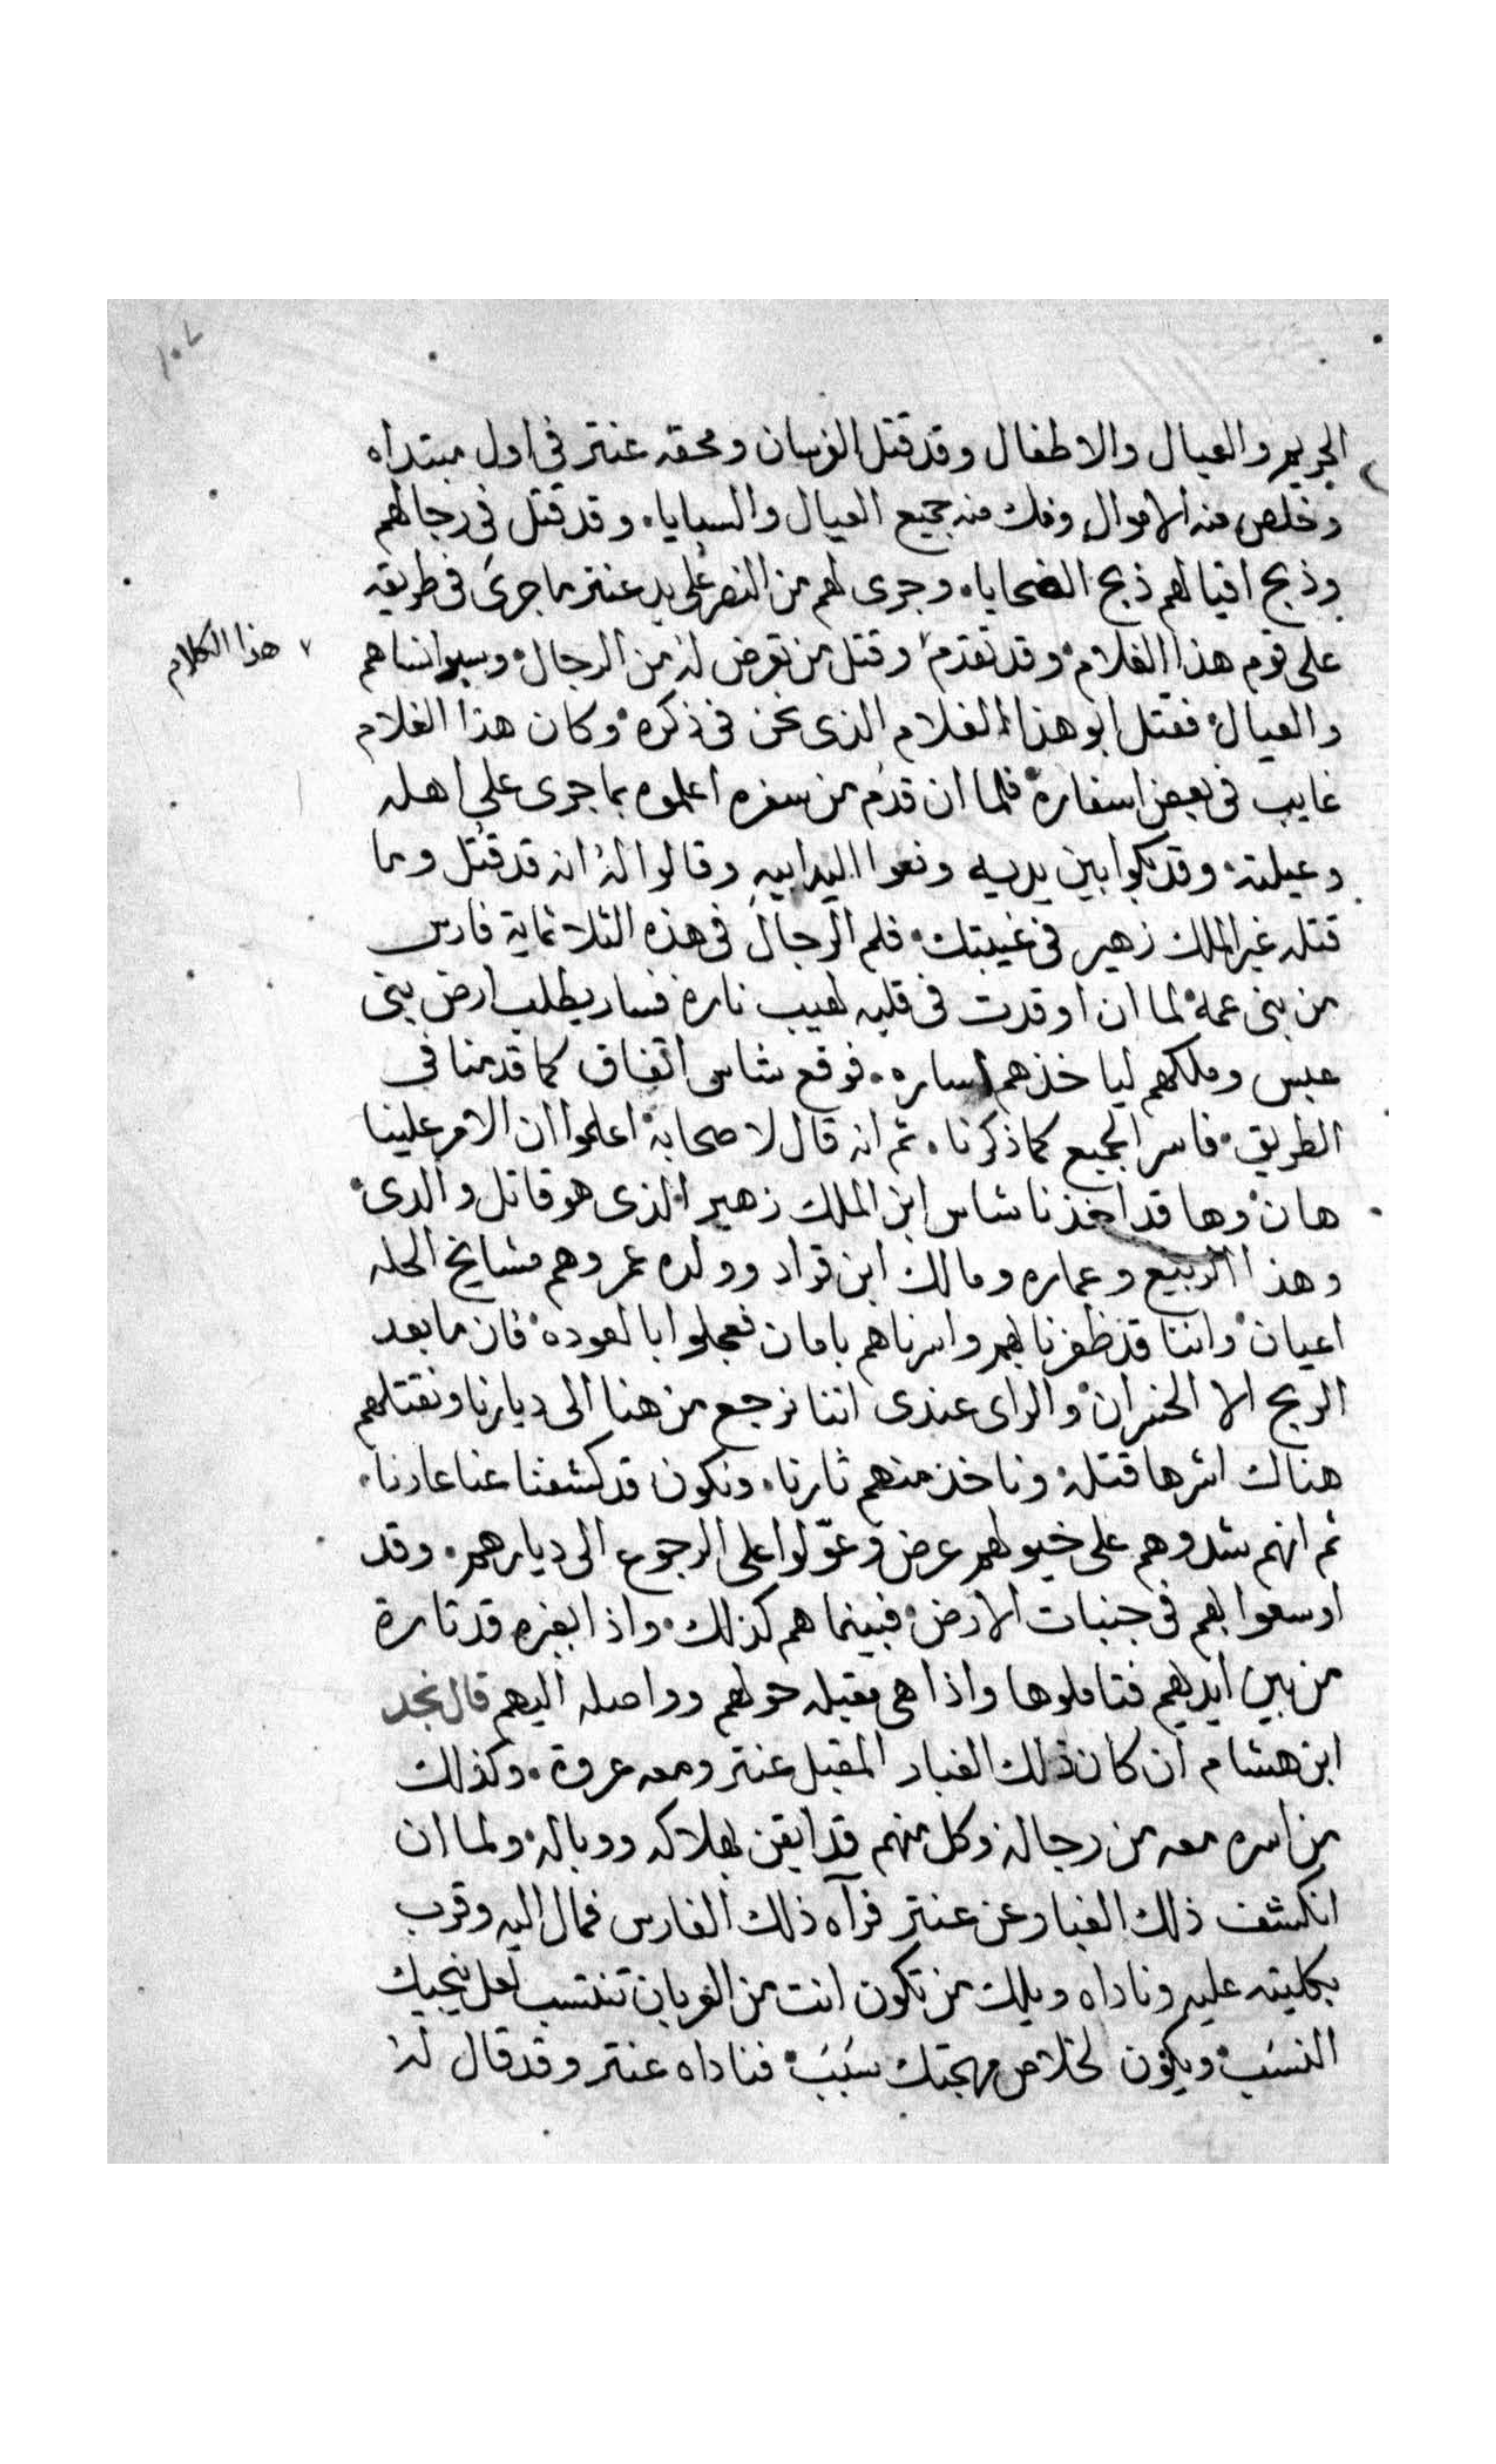 ١٠٧
الحريم والعيال والاطفال وقد قتل الفرسان ومحقه عنتر في اول مبتداه
وخلص منه الاموال وفك منه جميع العيال والسبايا. وقد قتل في رجالهم
وذبح اقيالهم ذبح الضحايا. وجرى لهم من النصر على يد عنتر ما جرى في طريقه
على قوم هذا الغلام وقد تقدم وقتل من تعرض له من الرجال وسبوا نساهم
هذا الكلام
والعيال فقتل ابو هذا الغلام الذى نحن في ذكره وكان هذا الغلام
غايب في بعض اسفاره فلما ان قدم من سفره اعلموه بما جرى على اهله
وعيلته وقد بكوا بين يديه ونعوا اليه ابيه وقالوا له انه قد قتل وما
قتله غير الملك زهير في غيبتك فلم الرجال في هذه الثلاثماية فارس
من بنى عمه لما ان اوقدت في قلبه لهيب ناره فسار يطلب ارض بنى
عبس وملكهم لياخذهم اساره. فوقع شاس اتفاق كما قدمنا في
الطريق فاسر الجميع كما ذكرنا. ثم انه قال لاصحابه اعلموا ان الامر علينا
هان وها قد اخذنا شاس ابن الملك زهير الذى هو قاتل والدى
وهذا الربيع وعماره ومالك ابن قراد وولده عمر وهم مشايخ الحله
اعيان واننا قد ظفرنا بهم واسرناهم بامان فعجلوا بالعوده فان ما بعد
الربح الا الخسران والراى عندى اننا نرجع من هنا الى ديارنا ونقتلهم
هناك اشرها قتله وناخذ منهم ثارنا. ونكون قد كشفنا عنا عارنا.
ثم انهم شدوهم على خيولهم عرض وعوّلوا على الرجوع الى ديارهم. وقد
اوسعوا بهم في جنبات الارض فبينما هم كذلك واذا بغبره قد ثارة
من بين ايديهم فتاملوها واذا هى مقبله حولهم وواصله اليهم قال نجد
ابن هشام ان كان ذلك الغبار المقبل عنتر ومعه عروة. وكذلك
من اسره معه من رجاله وكل منهم قد ايقن بهلاكه ووباله ولما ان
انكشف ذلك الغبار عن عنتر فرآه ذلك الفارس فمال اليه وقرب
بكليته عليه وناداه ويلك من تكون انت من العربان تنتسب لعل ينجيك
النسَب ويكون لخلاص مهجتك سَبَبَ فناداه عنتر وقد قال له